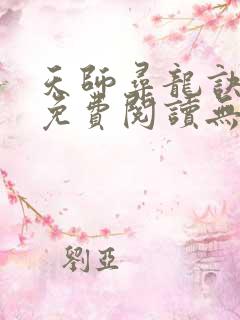 天師尋龍訣
免費閱讀無
劉亞